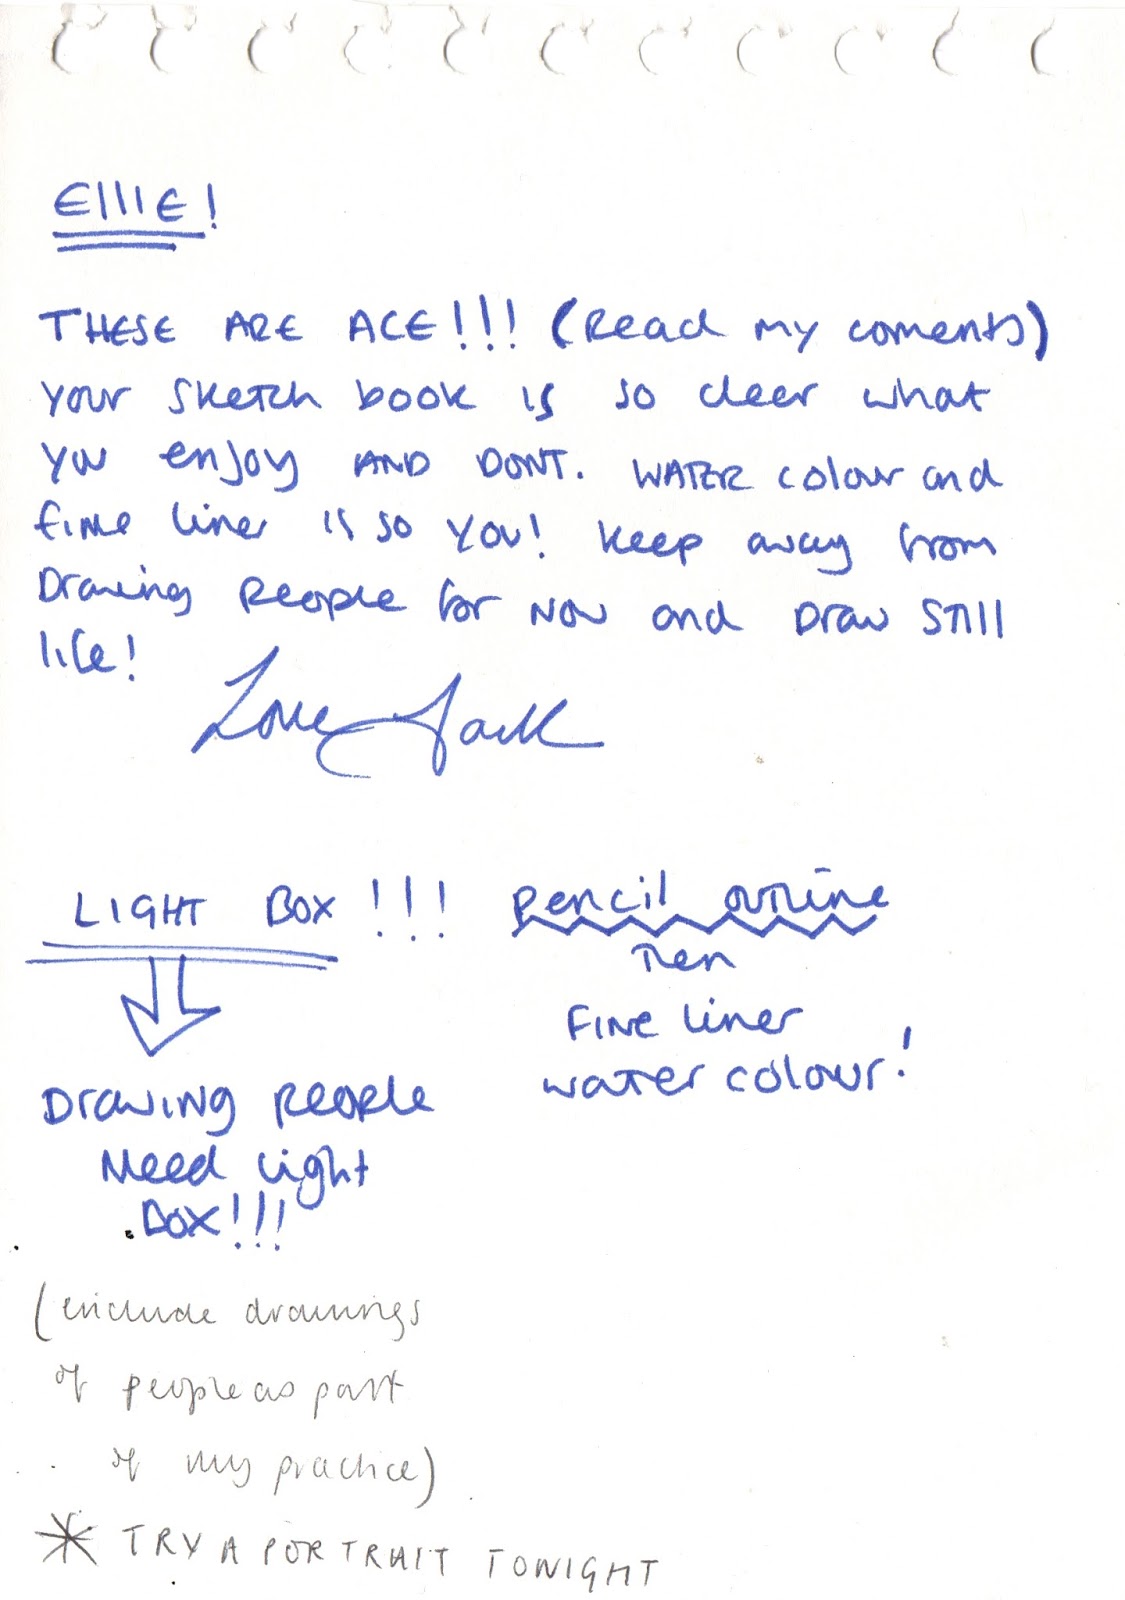 EllIE!
THESE ARE ACE!!! (Read my coments)
your sketch book is so cleer what
you enjoy AND DONT. WATER colour and
fine liner is so you! keep away from
Drawing people for NOW and DRAW STill
life!
Love Jack
LIGHT BOX!!!
Drawing people
Need Light
BOX!!!
pencil outline
Then
FINE liner
water colour!
(include drawings
of people as part
of my practice)
* TRY A PORTRAIT TONIGHT